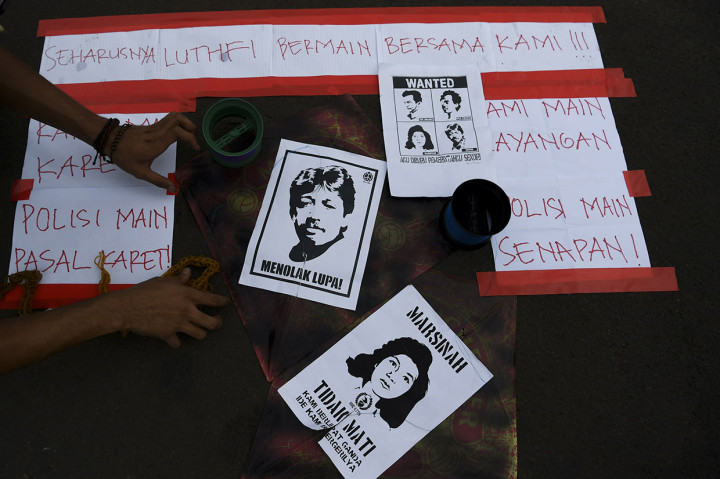 SEHARUSNYA LUTHFI BERMAIN BERSAMA KAMI !!!
KARE
POLISI MAIN
PASAL KARET!
WANTED
AKU DIBURU PEMERINTAHKU SENDIRI
AMI MAIN
AYANGAN
OLISI MAIN
SENAPAN!
MENOLAK LUPA!
MARSINAH
TIDAK MATI
KAMI BERLIPAT GANDA
IDE KAMI BERGERILYA